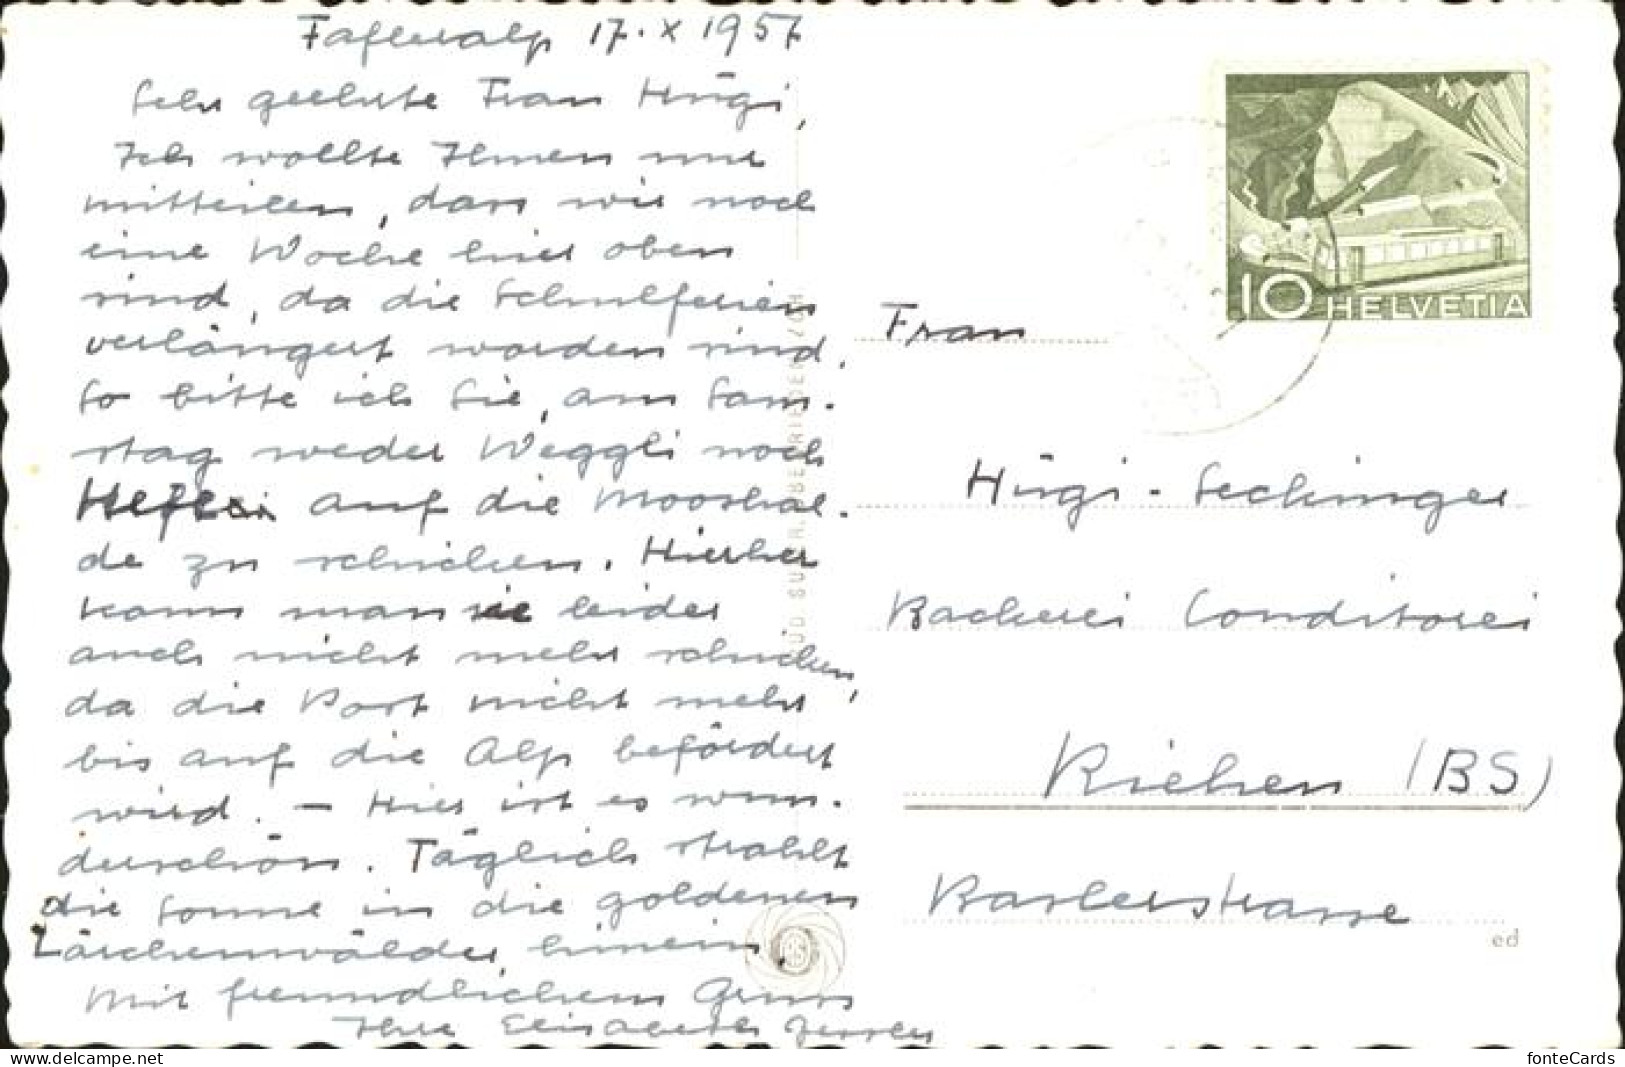 Fafleralp 17. X 1957
Sehr geehrte Frau Hügi,
Ich wollte Ihnen nur
mitteilen, dass wir noch
eine Woche hier oben
sind, da die Schulferien
verlängert worden sind.
So bitte ich Sie, am Sam-
stag weder Weggli noch
auf die Mooshal-
de zu schicken. Hierher
kann man sie leider
auch nicht mehr schicken,
da die Post nicht mehr
bis auf die Alp befördert
wird. – Hier ist es wun-
derschön. Täglich strahlt
die Sonne in die goldenen
Lärchenwälder hinein.
Mit freundlichem Gruss
Ihre Elisabeth
HELVETIA
10
Frau
Hügi-Sechinger
Bäckerei Conditorei
Riehen (BS)
Baslerstrasse
ed
fonteCards
www.delcampe.net